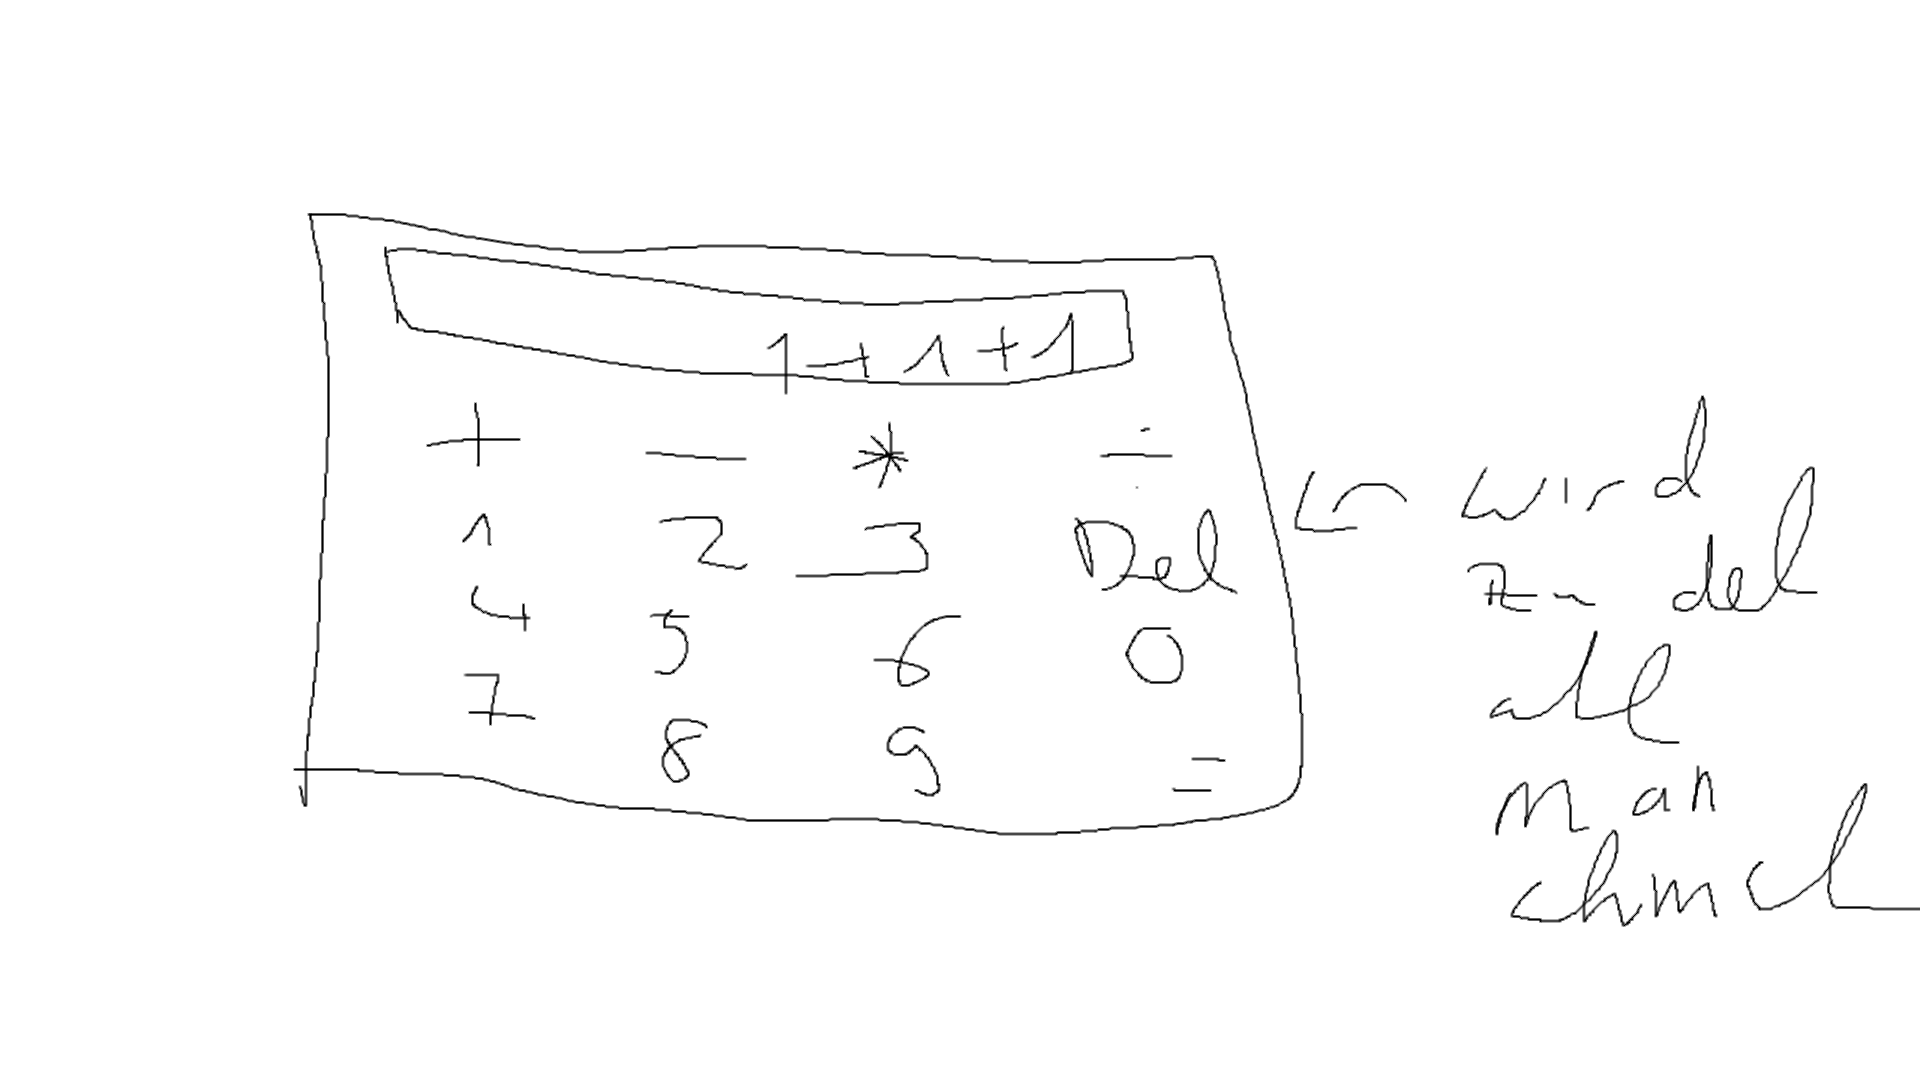 1+1+1
+ - * ÷
1 2 3 Del
4 5 6 0
7 8 9 =
wird
zu del
all
man
chmal